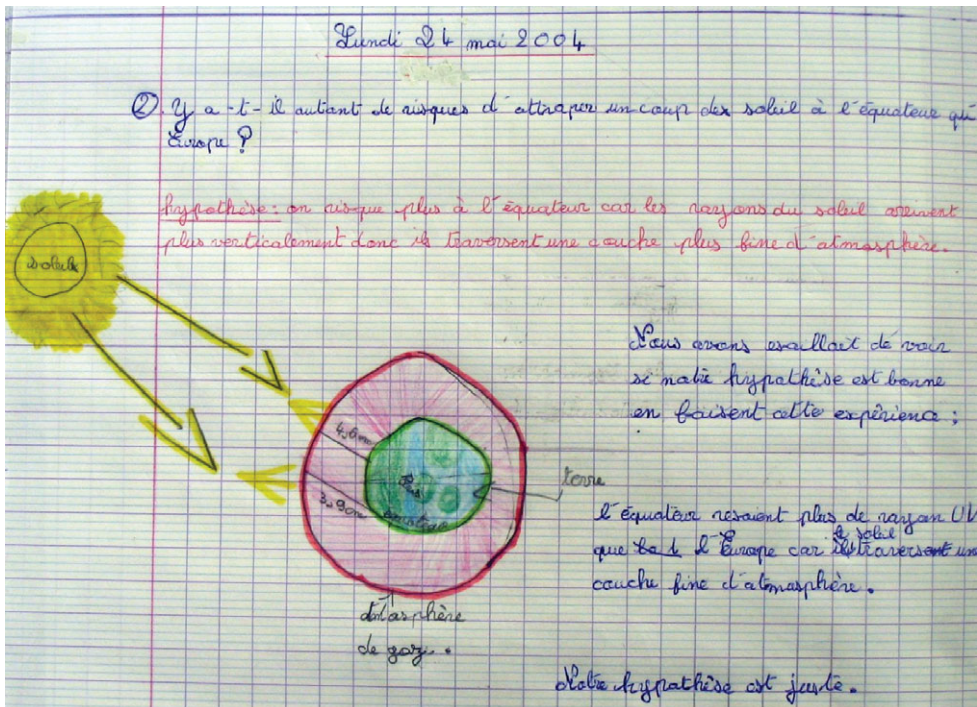 Lundi 24 mai 2004
② Y a-t-il autant de risques d'attraper un coup des soleil à l'équateur qu
Europe ?
hypothèse : on risque plus à l'équateur car les rayons du soleil arrivent
plus verticalement donc ils traversent une couche plus fine d'atmosphère.
soleil
Nous avons essallait de voir
si notre hypothèse est bonne
en faisent cette expérience ;
4,6 cm
3,9 cm
terre
l'équateur resoient plus de rayon UV
que l'Europe car le soleil traversent un
couche fine d'atmosphère.
de gaz.
Notre hypothèse est juste.